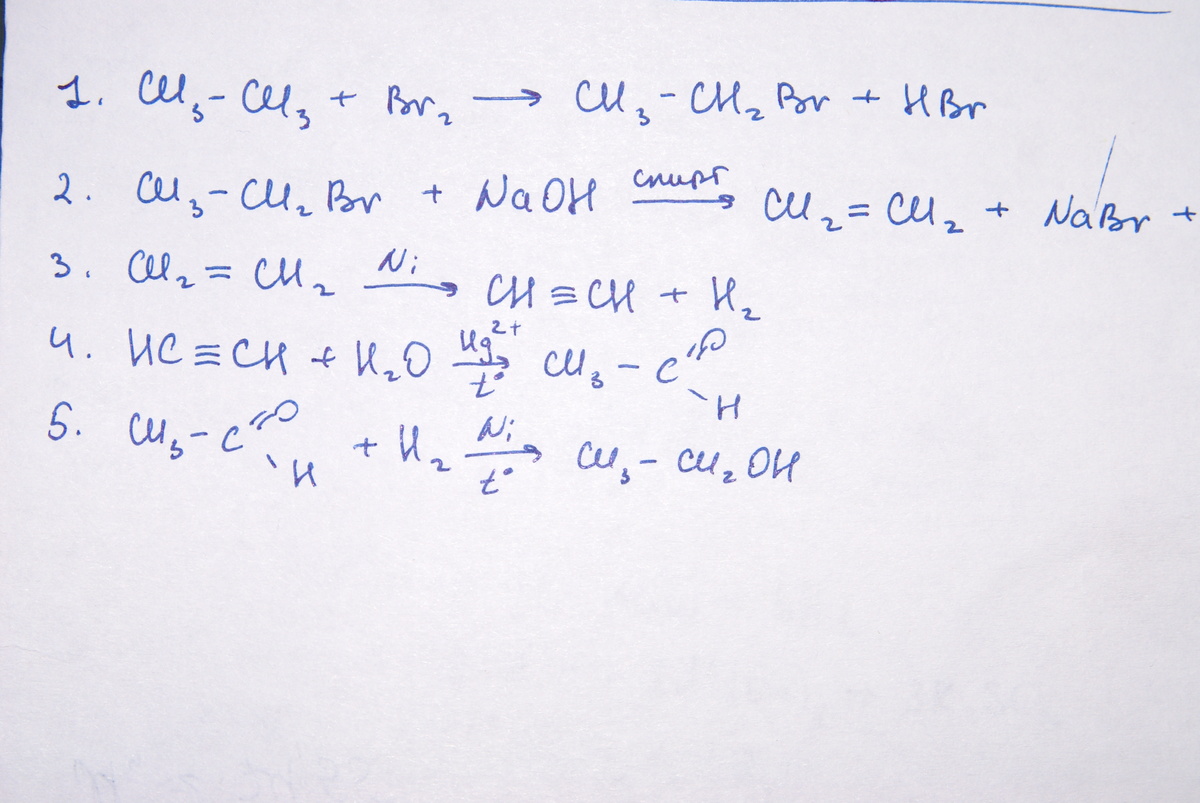 1. CH₃-CH₃ + Br₂ ⟶ CH₃-CH₂Br + HBr
2. CH₃-CH₂Br + NaOH спирт⟶ CH₂=CH₂ + NaBr +
3. CH₂=CH₂ Ni⟶ CH≡CH + H₂
4. HC≡CH + H₂O Hg²⁺⟶t° CH₃-C=O-H
5. CH₃-C=O-H + H₂ Ni⟶t° CH₃-CH₂OH